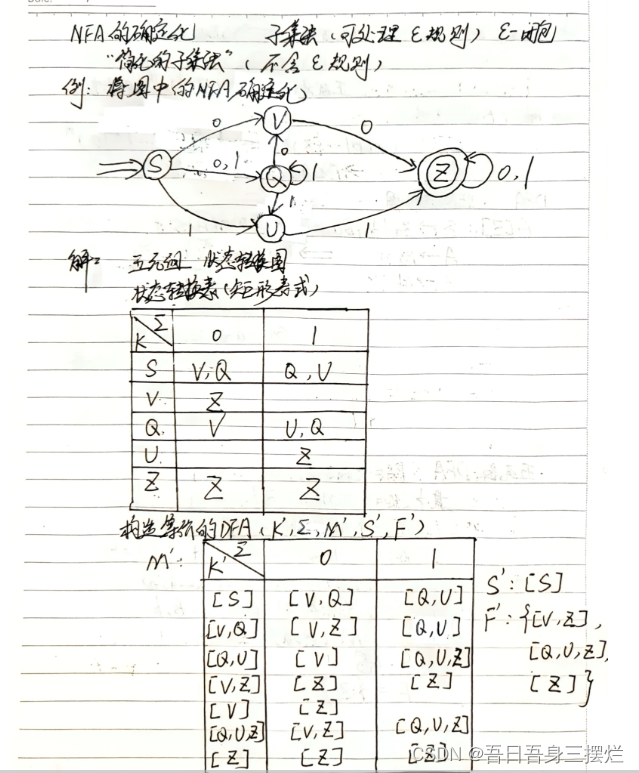 NFA的确定化 子集法(可处理 ε规则) ε-闭包
"简化的子集法"(不含ε规则)
例:将图中的NFA确定化
S 0 V 0
0,1 Q 0 1 1
Z 0,1
1 U 1
解: 五元组 状态转换图
状态转换表(矩形表式)
K Σ 0 1
S V,Q Q,U
V Z
Q V U,Q
U Z
Z Z Z
构造等价的DFA(K',Σ,M',S',F')
M': K' Σ 0 1
[S] [V,Q] [Q,U]
[V,Q] [V,Z] [Q,U]
[Q,U] [V] [Q,U,Z]
[V,Z] [Z] [Z]
[V] [Z]
[Q,U,Z] [V,Z] [Q,U,Z]
[Z] [Z] [Z]
S':[S]
F':{[V,Z],
[Q,U,Z],
[Z]}
CSDN @吾日吾身三摆烂